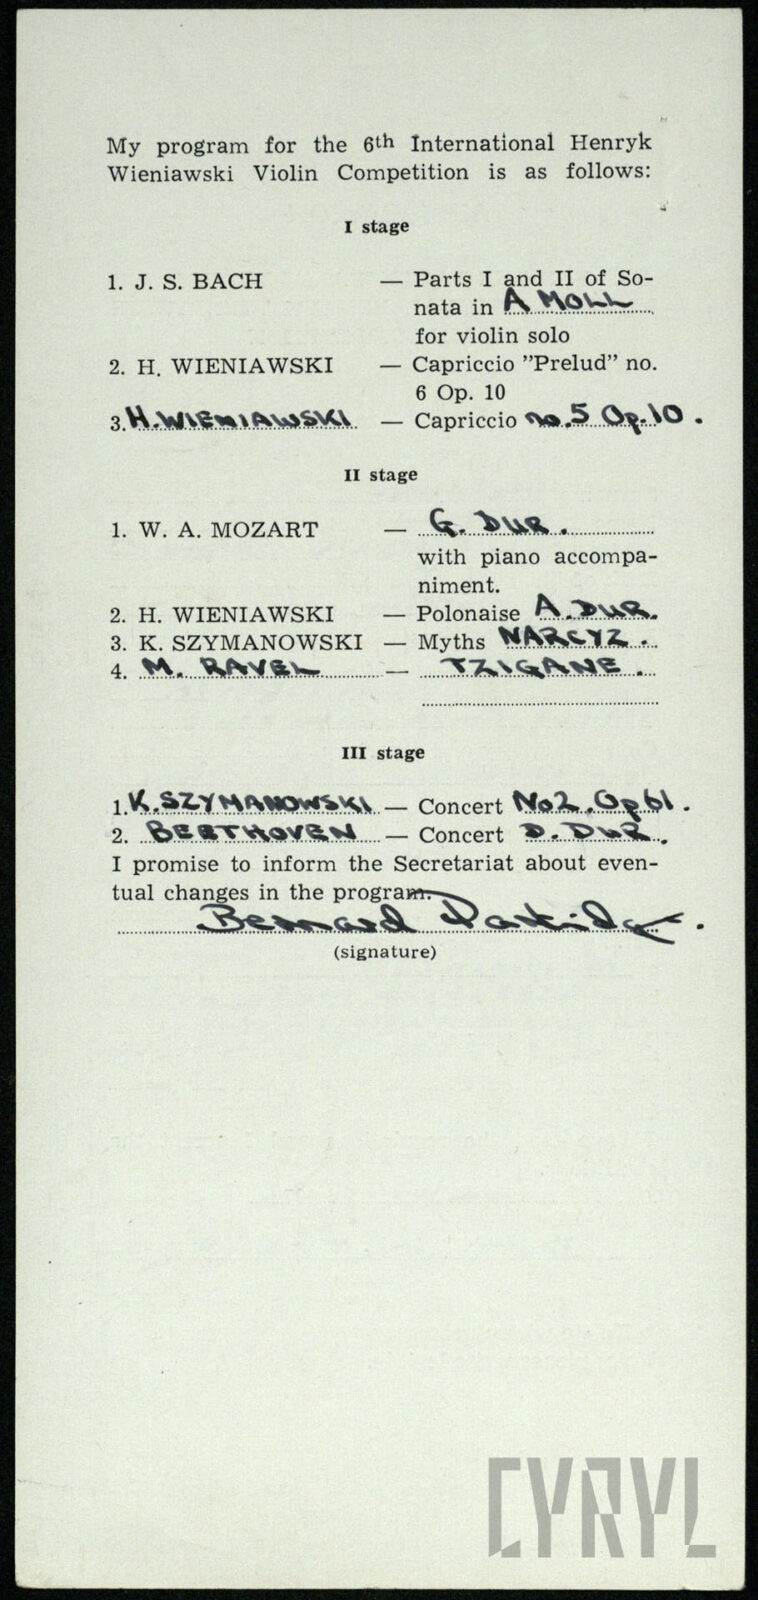 My program for the 6th International Henryk
Wieniawski Violin Competition is as follows:
I stage
1. J. S. BACH — Parts I and II of So-
nata in A MOLL
for violin solo
2. H. WIENIAWSKI — Capriccio "Prelud" no.
6 Op. 10
3. H. WIENIAWSKI — Capriccio no. 5 Op. 10.
II stage
1. W. A. MOZART — G. DUR.
with piano accompa-
niment.
2. H. WIENIAWSKI — Polonaise A. DUR.
3. K. SZYMANOWSKI — Myths NARCYZ.
4. M. RAVEL — TZIGANE.
III stage
1. K. SZYMANOWSKI — Concert No2. Op 61.
2. BEETHOVEN — Concert D. DUR.
I promise to inform the Secretariat about even-
tual changes in the program.
Bernard
(signature)
CYRYL